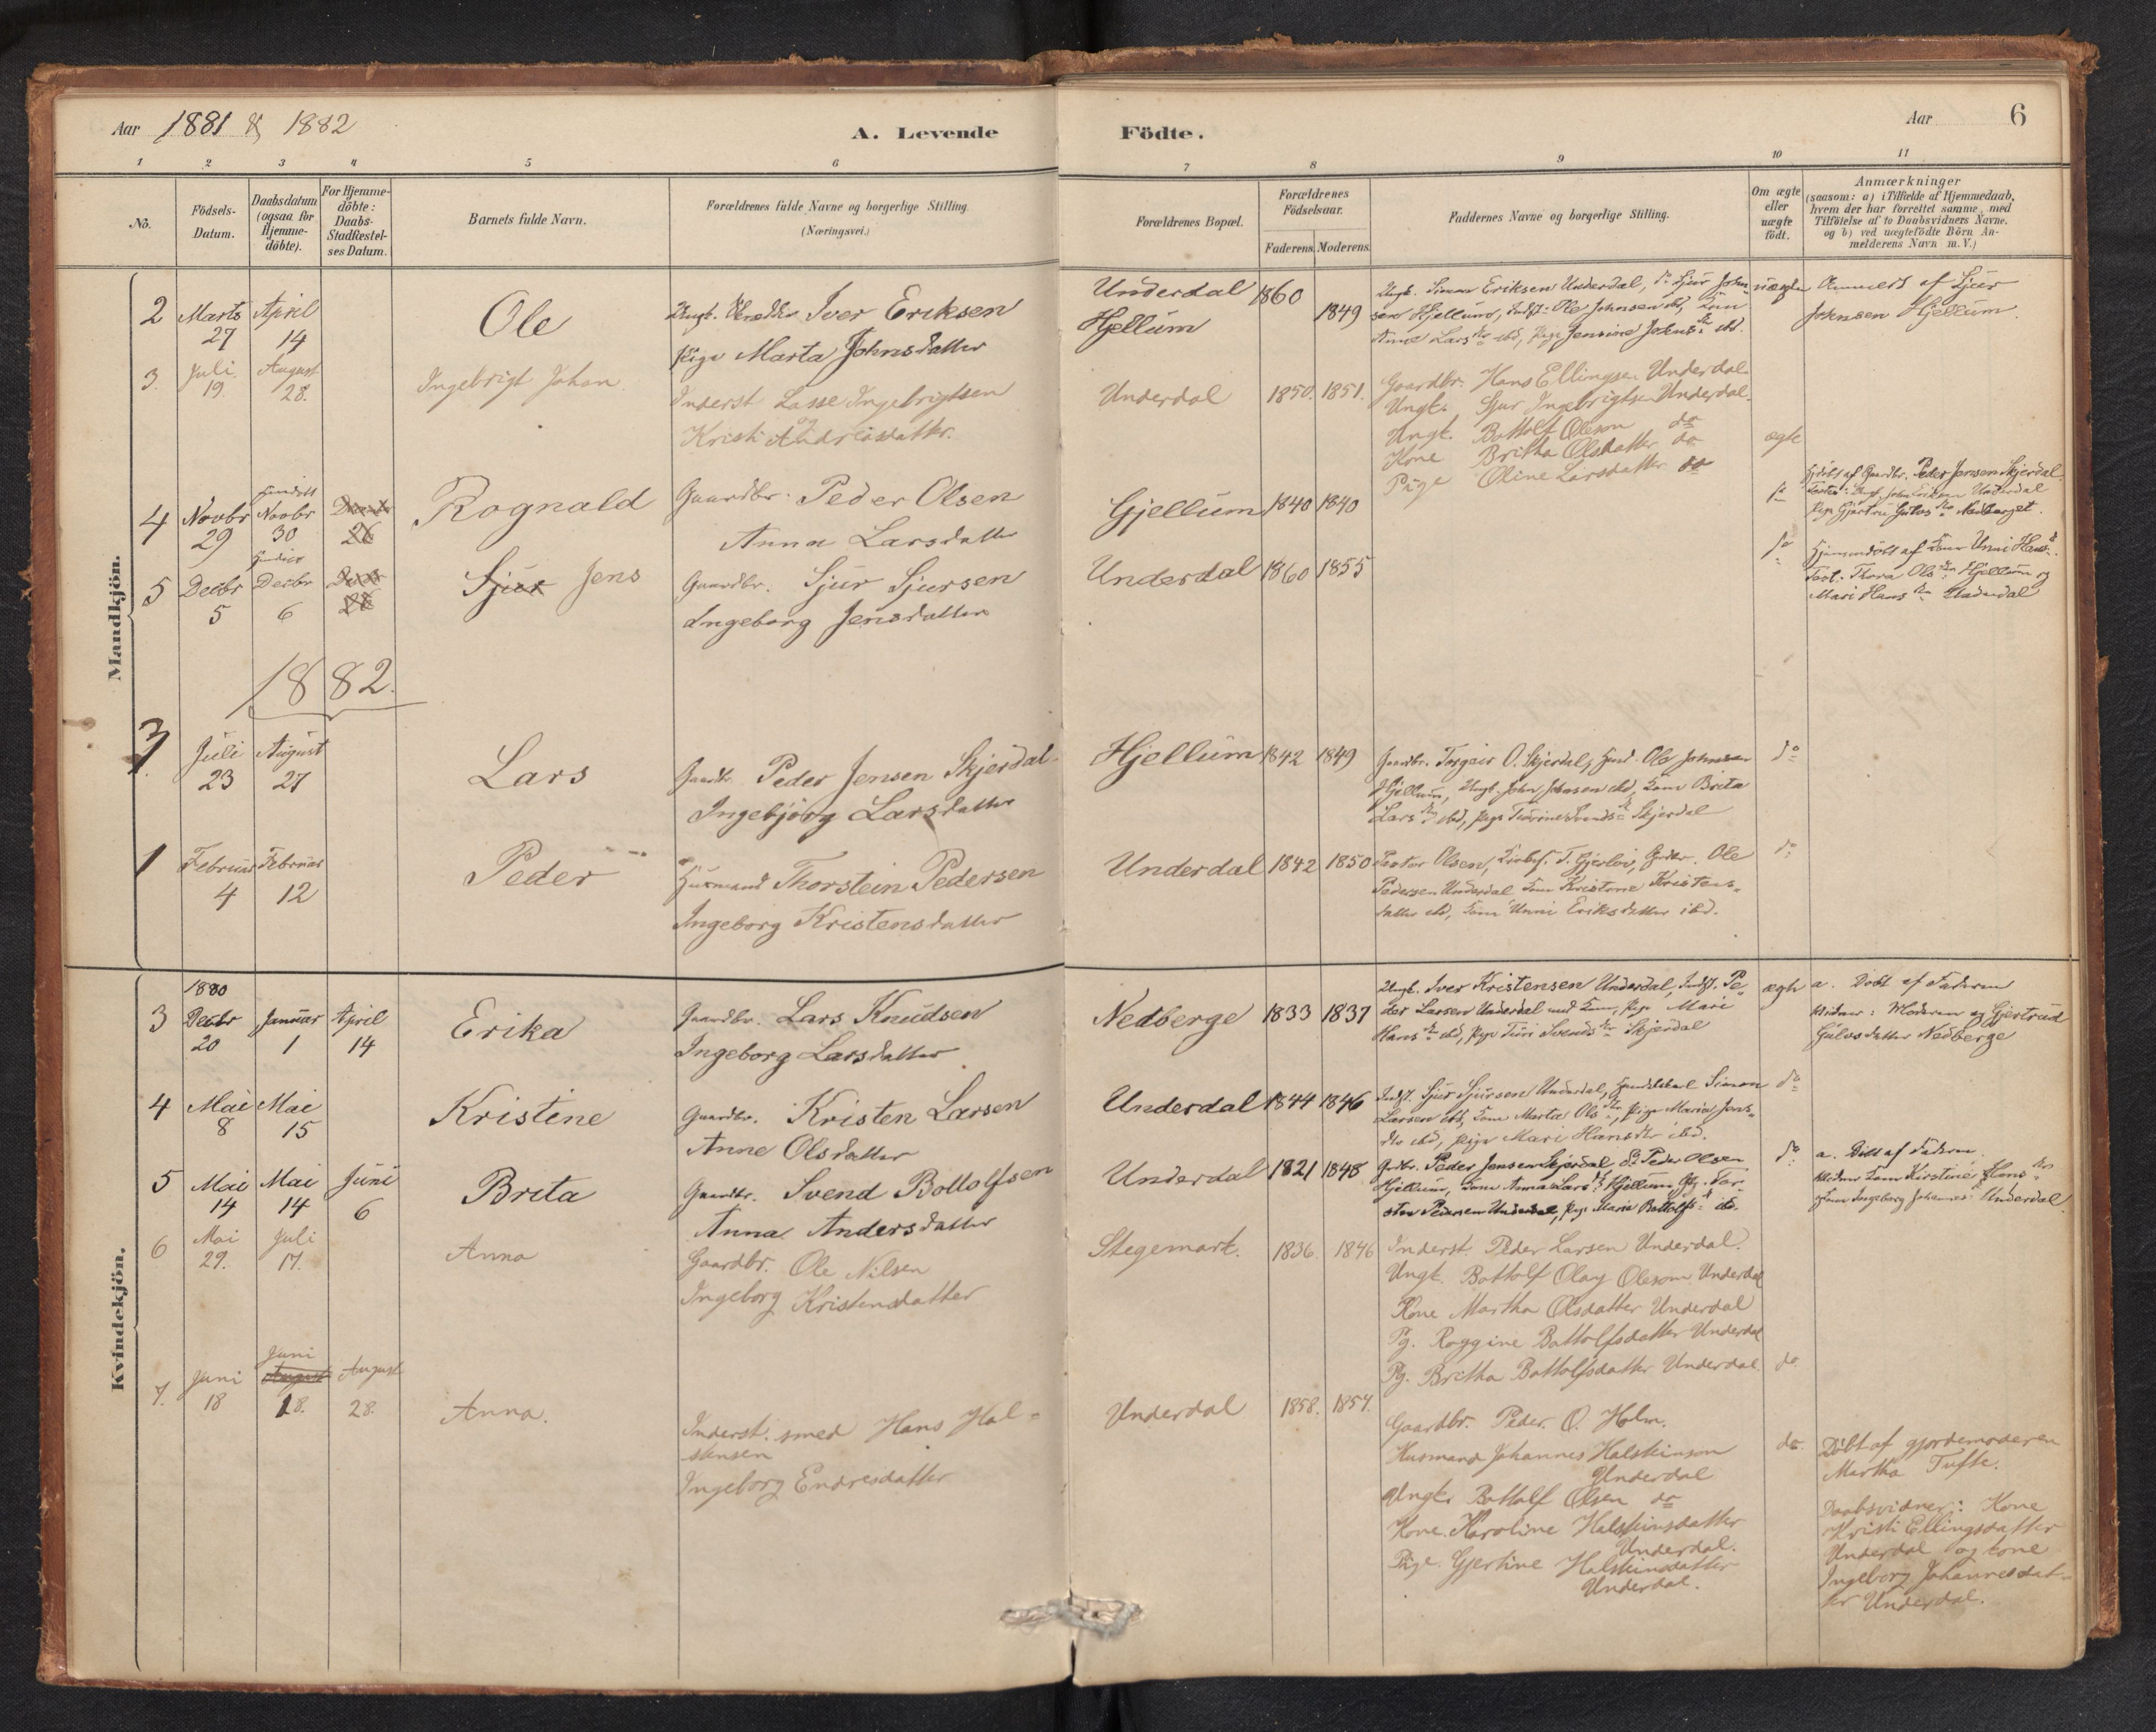 Aar 1881 & 1882
A. Levende Födte.
Aar 6
1 2 3 4 5 6 7 8 9 10 11
No.
Födsels-Datum.
Daabsdatum (ogsaa for Hjemme-döbte).
For Hjemme-döbte: Daabs-Stadfæstel-ses Datum.
Barnets fulde Navn.
Forældrenes fulde Navne og borgerlige Stilling.
(Næringsvei.)
Forældrenes Bopæl.
Forældrenes Födselsaar.
Faderens. Moderens.
Faddernes Navne og borgerlige Stilling.
Om ægte eller uægte födt.
Anmærkninger
(saasom: a) i Tilfælde af Hjemmedaab,
hvem der har forrettet samme, med
Tilföielse af to Daabsvidners Navne.
og b) ved uægtefödte Börn An-
melderens Navn m.V.)
Mandkjön.
2 Marts 27 April 14
Ole
Ungk. Iver Eriksen
Pige Marta Johnsdatter
Underdal 1860
Hjellum 1849
Ungk. Simon Eriksen Underdal, do Sjur John-
sen Hjellum, Indst. Ole Johnsen ibd, Kone
Anne Larsdtr ibd, Pige Jensine Johnsdr ibd.
uægte
Anmeldt af Sjur
Johnsen Hjellum.
3. Juli 19. August 28.
Ingebrigt Johan.
Inderst Lasse Ingebrigtsen
og
Kristi Andreasdatter.
Underdal 1850. 1851.
Gaardbr. Hans Ellingsen Underdal.
Ungk. Sjur Ingebrigtsen Underdal.
Ungk. Bottolf Oleson do
Kone Britha Olsdatter do
Pige Oline Larsdatter do
ægte
4 Novbr 29 Hjemdöbt Novbr 30 26
Rognald
Gaardbr. Peder Olsen
Anna Larsdatter
Gjellum 1840 1840
do
Hjdöbt af Gaardbr. Peder Jensen Skjerdal.
Test: Ungk. John Eriksen Underdal
Pige Gjertru Gulvsdtr Nedberget.
5 Decbr 5 Decbr 6 26
Sjur Jens
Gaardbr. Sjur Sjursen
Ingeborg Jensdatter
Underdal 1860 1855
do
Hjemmedöbt af Kone Unni Hansd.
Test. Thora Olsdtr Hjellum og
Mari Hansdtr Underdal
1882.
3 Juli 23 August 27
Lars
Gaardbr. Peder Jensen Skjerdal.
Ingebjörg Larsdatter
Hjellum 1842 1849
Gaardbr. Torgeir O. Skjerdal, Husm. Ole Johnsen
Hjellum, Ungk. John Johnsen ibd, Kone Brita
Larsdtr ibd, Pige Turine Svendsdr Skjerdal
do
1 Februar 4 Februar 12
Peder
Husmand Thorstein Pedersen
Ingeborg Kristensdatter
Underdal 1842 1850
Pastor Olsen, T. Gjerlöv, Grdbr. Ole
Pedersen Underdal Kone Kristine Kristens-
datter ibd, Kone Unni Eriksdatter ibd.
do
Kvindekjön.
3 1880 Decbr 20 Januar 1 April 14
Erika
Gaardbr. Lars Knudsen
Ingeborg Larsdatter
Nedberge 1833 1837
Ungk. Iver Kristensen Underdal, Indst. Pe-
der Larsen Underdal med Kone, Pige Mari
Hansdtr ibd, Pige Turi Svendsdtr Skjerdal
ægte
a. Döbt af Faderen
Vidner: Moderen og Gjertrud
Gulvsdatter Nedberge
4 Mai 8 Mai 15
Kristine
Gaardbr. Kristen Larsen
Anne Olsdatter
Underdal 1844 1846
Indst. Sjur Sjursen Underdal, Simon
Larsen ibd, Kone Marta Olsdtr, Pige Maria Jens-
dtr ibd, Pige Mari Hansdtr ibd.
do
5 Mai 14 Mai 14 Juni 6
Brita
Gaardbr. Svend Bottolfsen
Anna Andersdatter
Underdal 1821 1848
Grdbr. Peder Jensen Skjerdal, do Peder Olsen
Hjellum, Kone Anna Larsd. Hjellum, Tor-
sten Pedersen Underdal, Pige Maria Bottolfsd ibd.
do
a. Döbt af Faderen.
Vidner Kone Kirstine Hansdtr
og Kone Ingeborg Johannesd Underdal.
6 Mai 29. Juli 17.
Anna
Gaardbr. Ole Nilsen
Ingeborg Kristensdatter
Stegemark. 1836. 1846
Inderst. Peder Larsen Underdal.
Ungk. Bottolf Olay Oleson Underdal
Kone Martha Olsdatter Underdal
Pg. Roggine Bottolfsdatter Underdal
Pg. Britha Bottolfsdatter Underdal.
do.
7. Juni 18 Juni August 18. August 28.
Anna.
Inderst. smed Hans Hal-
stensen
Ingeborg Endresdatter
Underdal 1858. 1857.
Gaardbr. Peder. O. Holm.
Husmand Johannes Halsteinson
Underdal
Ungk. Bottolf Olsen do
Kone. Karoline Halsteinsdatter
Underdal.
Pige. Gjertine Halsteinsdatter
Underdal.
do.
Döbt af gjordemoderen
Martha Tufte.
Daabsvidner: Kone
Kristi Ellingsdatter
Underdal og kone
Ingeborg Johannesdat-
ter Underdal.